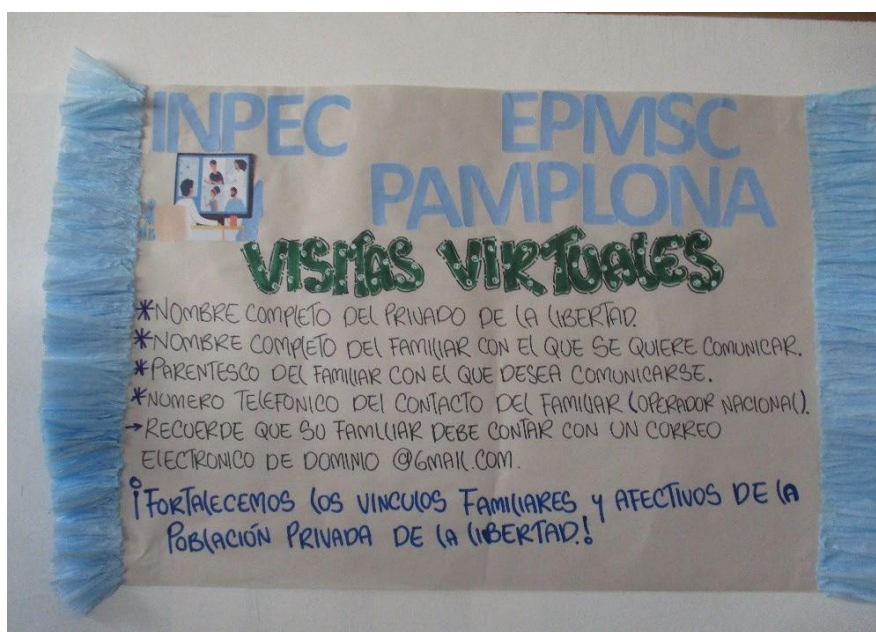 INPEC EPMSC
PAMPLONA
VISITAS VIRTUALES
*NOMBRE COMPLETO DEL PRIVADO DE LA LIBERTAD.
*NOMBRE COMPLETO DEL FAMILIAR CON EL QUE SE QUIERE COMUNICAR.
*PARENTESCO DEL FAMILIAR CON EL QUE DESEA COMUNICARSE.
*NUMERO TELEFONICO DEL CONTACTO DEL FAMILIAR (OPERADOR NACIONAL).
→RECUERDE QUE SU FAMILIAR DEBE CONTAR CON UN CORREO
ELECTRONICO DE DOMINIO @GMAIL.COM.
¡FORTALECEMOS LOS VINCULOS FAMILIARES Y AFECTIVOS DE LA
POBLACIÓN PRIVADA DE LA LIBERTAD!